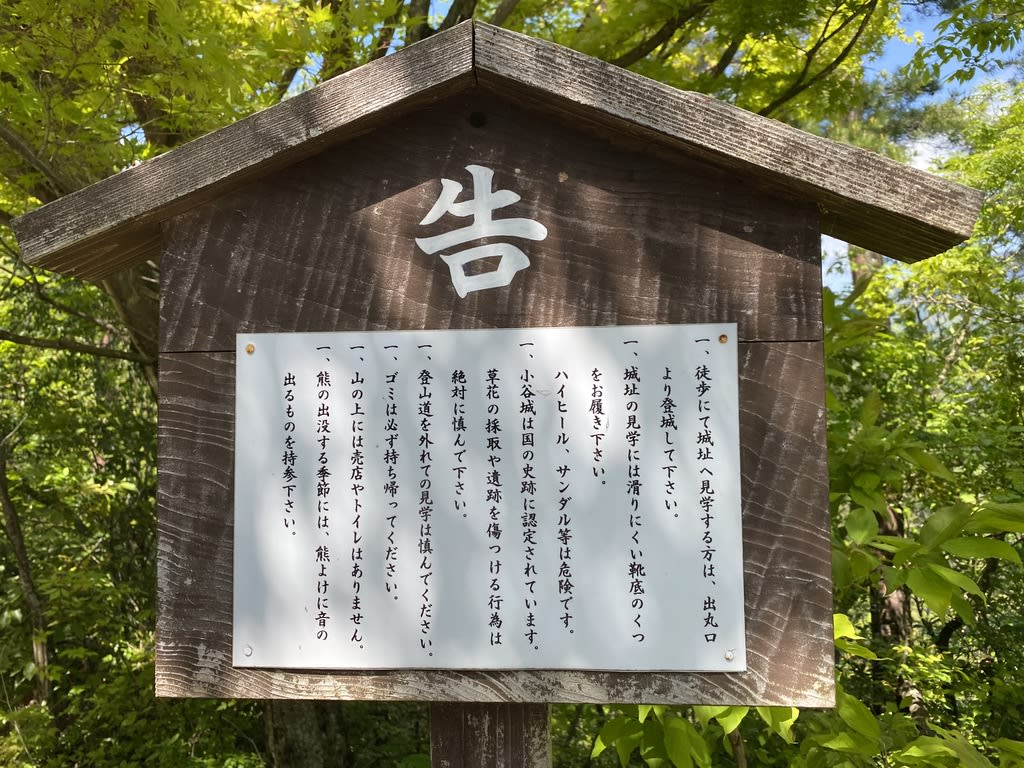 告
一、徒歩にて城址へ見学する方は、出丸口
より登城して下さい。
一、城址の見学には滑りにくい靴底のくつ
をお履き下さい。
ハイヒール、サンダル等は危険です。
一、小谷城は国の史跡に認定されています。
草花の採取や遺跡を傷つける行為は
絶対に慎んで下さい。
一、登山道を外れての見学は慎んでください。
一、ゴミは必ず持ち帰ってください。
一、山の上には売店やトイレはありません。
一、熊の出没する季節には、熊よけに音の
出るものを持参下さい。